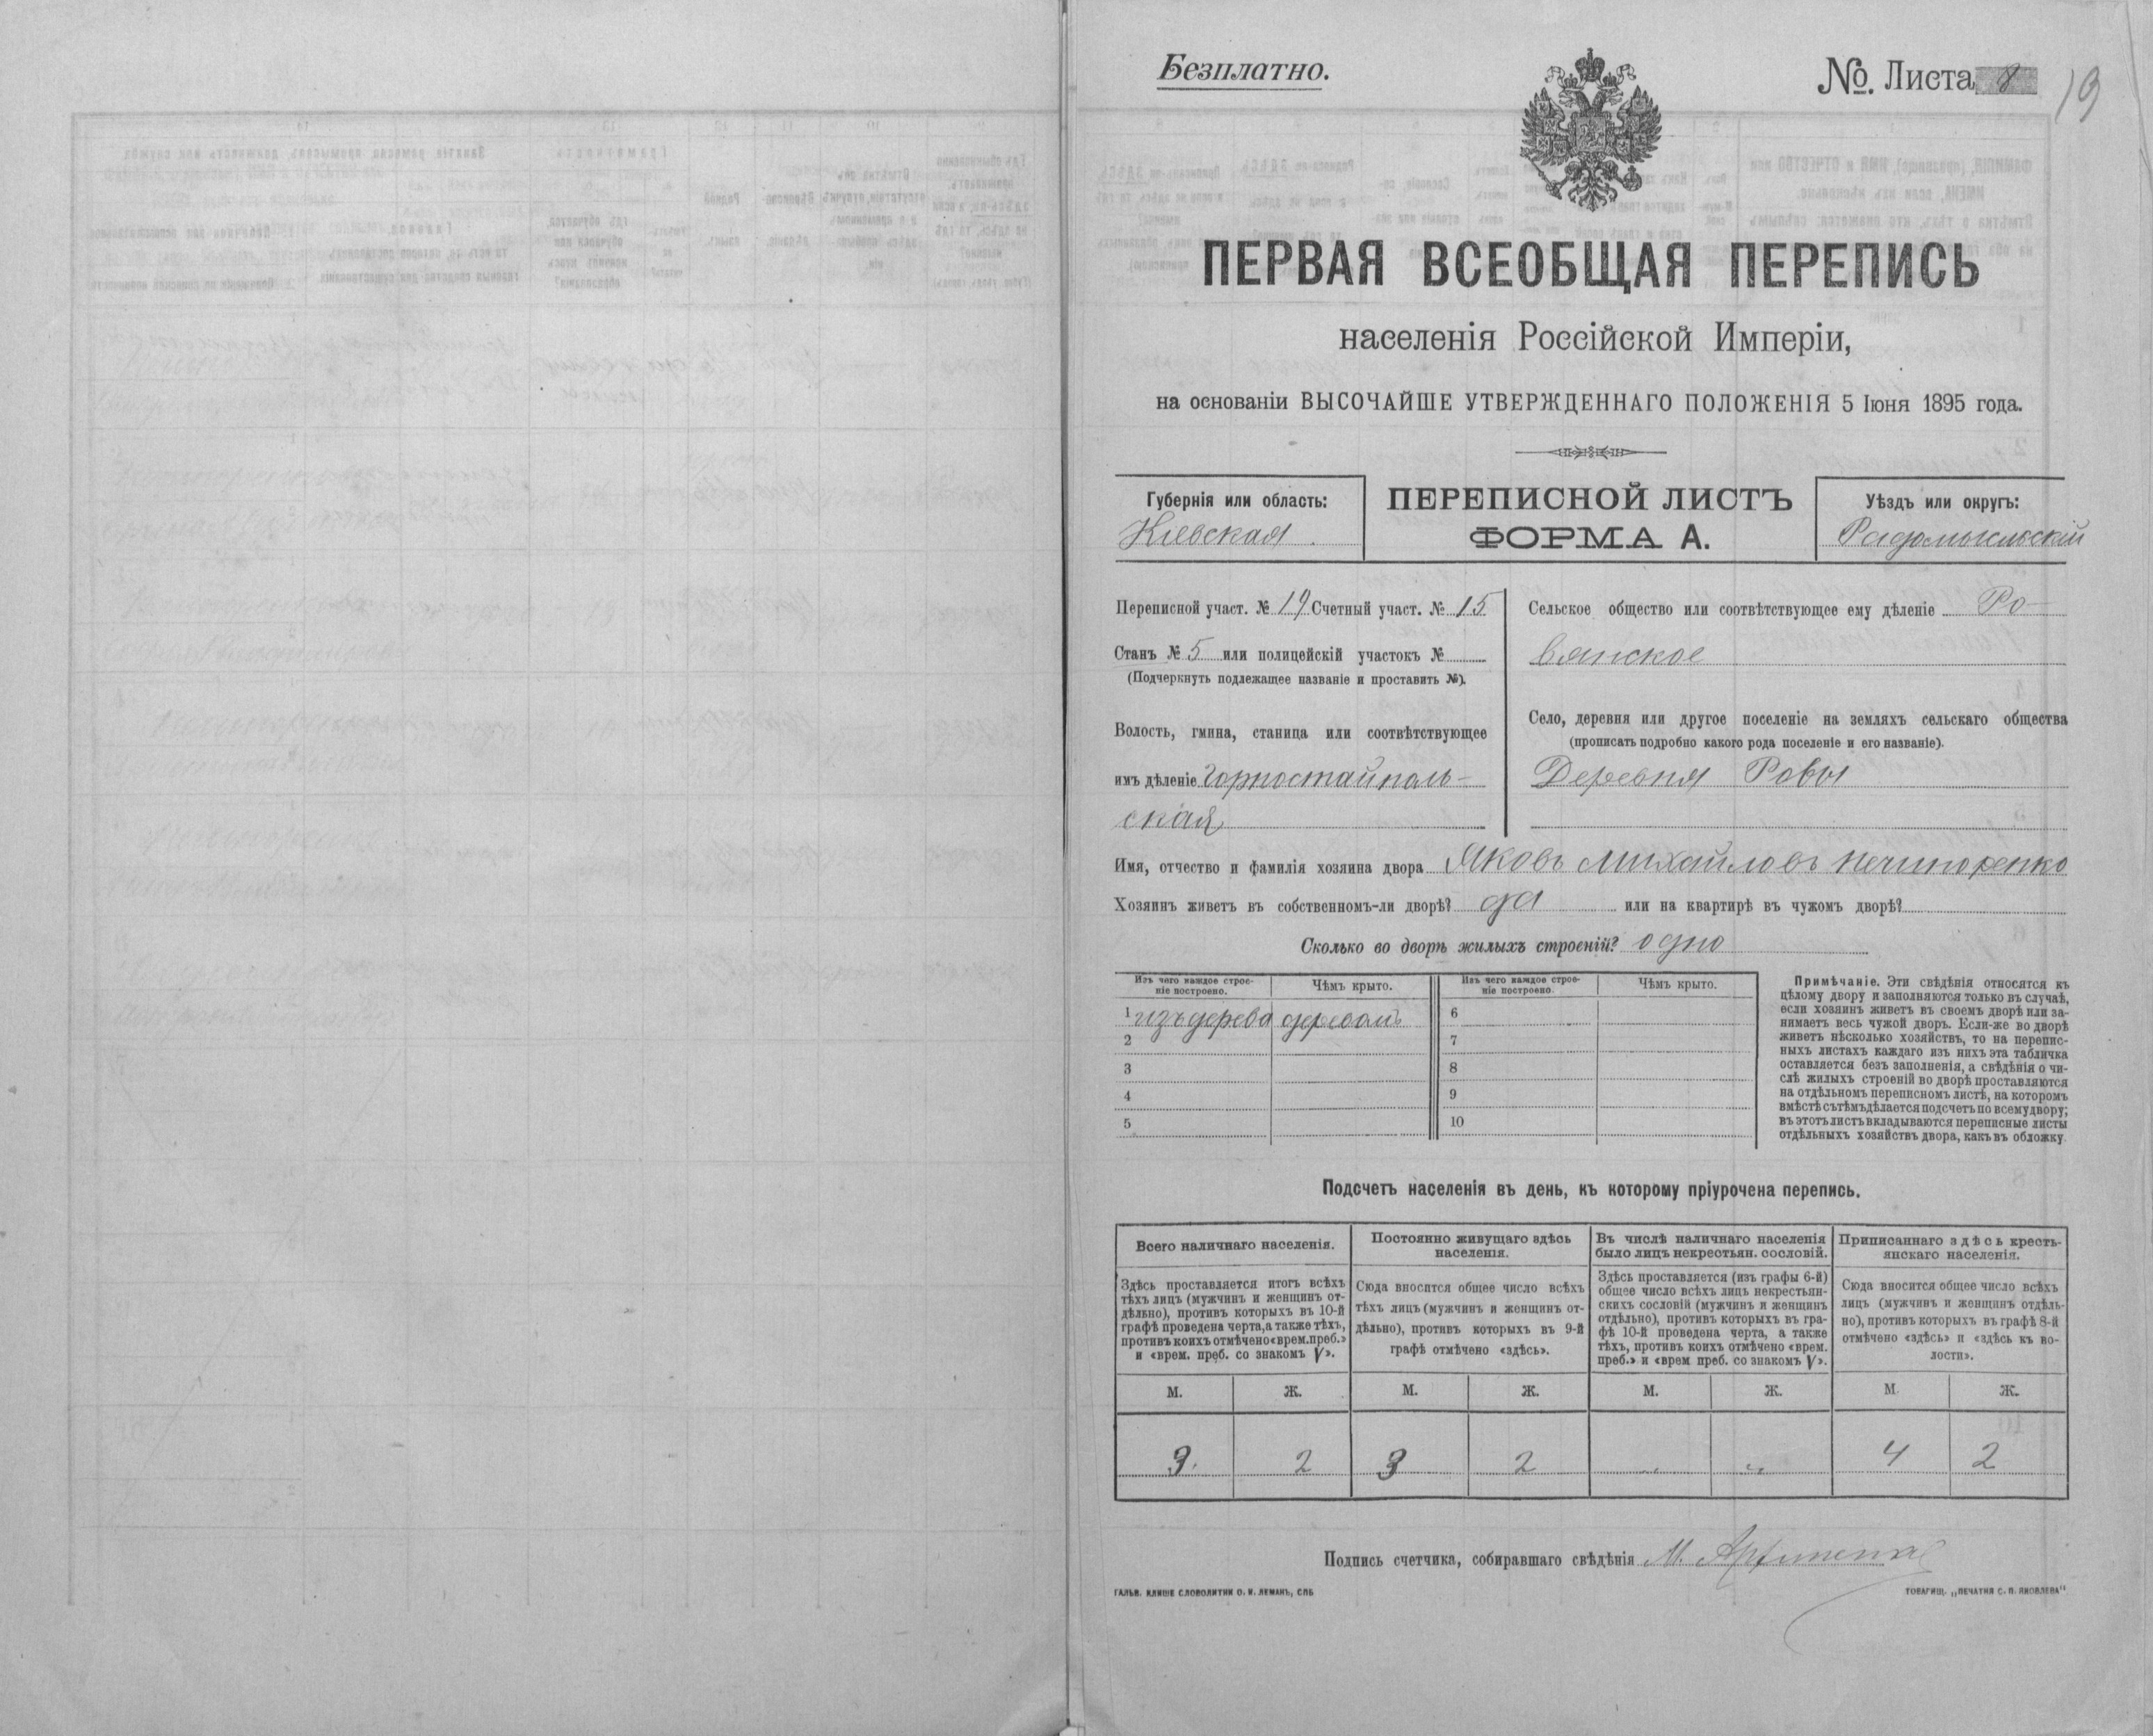 Безплатно.
№. Листа 8
19
ПЕРВАЯ ВСЕОБЩАЯ ПЕРЕПИСЬ
населенія Россійской Имперіи,
на основаніи ВЫСОЧАЙШЕ УТВЕРЖДЕННАГО ПОЛОЖЕНІЯ 5 Іюня 1895 года.
Губернія или область:
Кіевская.
ПЕРЕПИСНОЙ ЛИСТЪ
ФОРМА А.
Уѣздъ или округъ:
Радомысльскій
Переписной участ. № 19 Счетный участ. № 15
Станъ № 5 или полицейскій участокъ №
(Подчеркнуть подлежащее названіе и проставить №).
Волость, гмина, станица или соотвѣтствующее
имъ дѣленіе Горностайполь-
ская
Сельское общество или соотвѣтствующее ему дѣленіе Ро-
вянское
Село, деревня или другое поселеніе на земляхъ сельскаго общества
(прописать подробно какого рода поселеніе и его названіе).
Деревня Ровы
Имя, отчество и фамилія хозяина двора Яковъ Михайловъ Нечипоренко
Хозяинъ живетъ въ собственномъ-ли дворѣ? да или на квартирѣ въ чужомъ дворѣ?
Сколько во дворѣ жилыхъ строеній? одно
Изъ чего каждое строе-
ніе построено.
Чѣмъ крыто.
Изъ чего каждое строе-
ніе построено.
Чѣмъ крыто.
1 изъ дерева деревомъ 6
2 7
3 8
4 9
5 10
Примѣчаніе. Эти свѣдѣнія относятся къ
цѣлому двору и заполняются только въ случаѣ,
если хозяинъ живетъ въ своемъ дворѣ или за-
нимаетъ весь чужой дворъ. Если-же во дворѣ
живетъ нѣсколько хозяйствъ, то на перепис-
ныхъ листахъ каждаго изъ нихъ эта табличка
оставляется безъ заполненія, а свѣдѣнія о чи-
слѣ жилыхъ строеній во дворѣ проставляются
на отдѣльномъ переписномъ листѣ, на которомъ
вмѣстѣ съ тѣмъ дѣлается подсчетъ по всему двору;
въ этотъ листъ вкладываются переписные листы
отдѣльныхъ хозяйствъ двора, какъ въ обложку.
Подсчетъ населенія въ день, къ которому пріурочена перепись.
Всего наличнаго населенія.
Здѣсь проставляется итогъ всѣхъ
тѣхъ лицъ (мужчинъ и женщинъ от-
дѣльно), противъ которыхъ въ 10-й
графѣ проведена черта, а также тѣхъ,
противъ коихъ отмѣчено «врем. преб.»
и «врем. преб. со знакомъ V».
Постоянно живущаго здѣсь
населенія.
Сюда вносится общее число всѣхъ
тѣхъ лицъ (мужчинъ и женщинъ от-
дѣльно), противъ которыхъ въ 9-й
графѣ отмѣчено «здѣсь».
Въ числѣ наличнаго населенія
было лицъ некрестьян. сословій.
Здѣсь проставляется (изъ графы 6-й)
общее число всѣхъ лицъ некрестьян-
скихъ сословій (мужчинъ и женщинъ
отдѣльно), противъ которыхъ въ гра-
фѣ 10-й проведена черта, а также
тѣхъ, противъ коихъ отмѣчено «врем.
преб.» и «врем преб. со знакомъ V».
Приписаннаго здѣсь кресть-
янскаго населенія.
Сюда вносится общее число всѣхъ
лицъ (мужчинъ и женщинъ отдѣль-
но), противъ которыхъ въ графѣ 8-й
отмѣчено «здѣсь» и «здѣсь къ во-
лости».
М. Ж. М. Ж. М. Ж. М. Ж.
3. 2 3 2 „ „ 4 2
Подпись счетчика, собиравшаго свѣдѣнія М.
ГАЛЬВ. КЛИШЕ СЛОВОЛИТНИ О. И. ЛЕМАНЪ, СПБ
ТОВАРИЩ. „ПЕЧАТНЯ С. П. ЯКОВЛЕВА"